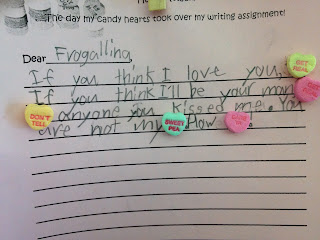 The day my candy hearts took over my writing assignment!
Dear Frogalling,
If you think I love you, GET REAL
If you think I'll be your man
DON'T TELL anyone you kissed me. You
are not my SWEET PEA. Now